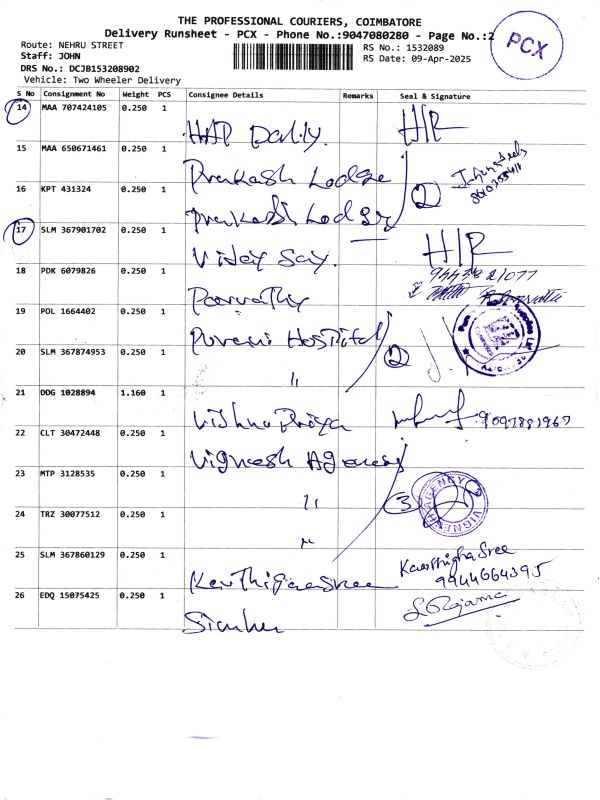 THE PROFESSIONAL COURIERS, COIMBATORE
Delivery Runsheet - PCX - Phone No.:9047080280 - Page No.:2
PCX
Route: NEHRU STREET
RS No.: 1532089
Staff: JOHN
RS Date: 09-Apr-2025
DRS No.: DCJB153208902
Vehicle: Two Wheeler Delivery
S No Consignment No Weight PCS Consignee Details Remarks Seal & Signature
14 MAA 707424105 0.250 1 HAP Daily. H/R
15 MAA 650671461 0.250 1 Prakash Lodge
16 KPT 431324 0.250 1 Prakash Lodge 2
17 SLM 367901702 0.250 1 Vijay Say. H/R
18 PDK 6079826 0.250 1 Parvathy 9443821077
19 POL 1664402 0.250 1 Puveni Hospital
20 SLM 367874953 0.250 1 " 2
21 DDG 1028894 1.160 1 Vishnu Priya 9097881967
22 CLT 30472448 0.250 1 Vignesh Agency
23 MTP 3128535 0.250 1 " 3 VIGNESH AGENCY
24 TRZ 30077512 0.250 1 "
25 SLM 367860129 0.250 1 Karthigaesree Karthigha Sree
9944664395
26 EDQ 15075425 0.250 1